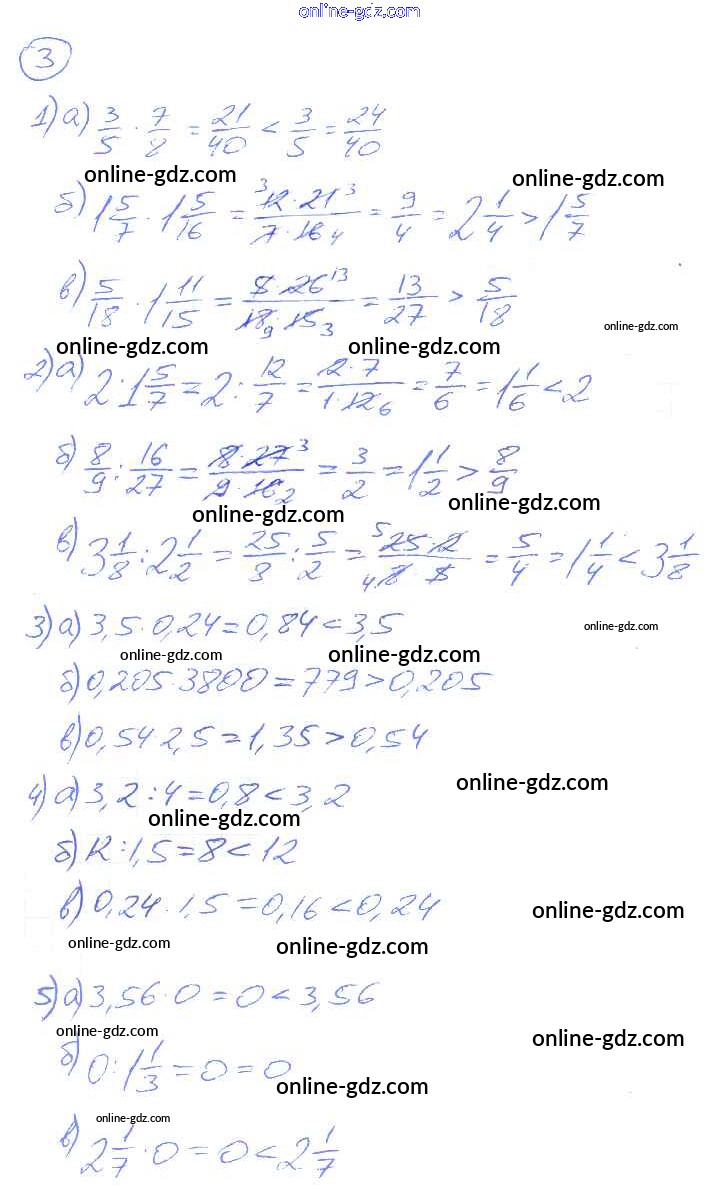 online-gdz.com
3
1) а) 3/5 · 7/8 = 21/40 < 3/5 = 24/40
online-gdz.com
online-gdz.com
б) 1 5/7 · 1 5/16 = 12 · 21/7 · 16 = 9/4 = 2 1/4 > 1 5/7
в) 5/18 · 1 11/15 = 5 · 26/18 · 15 = 13/27 > 5/18
online-gdz.com
online-gdz.com
online-gdz.com
2) а) 2 : 1 5/7 = 2 : 12/7 = 2 · 7/1 · 12 = 7/6 = 1 1/6 < 2
б) 8/9 : 16/27 = 8 · 27/9 · 16 = 3/2 = 1 1/2 > 8/9
online-gdz.com
online-gdz.com
в) 3 1/8 : 2 1/2 = 25/8 : 5/2 = 25 · 2/8 · 5 = 5/4 = 1 1/4 < 3 1/8
3) а) 3,5 · 0,24 = 0,84 < 3,5
online-gdz.com
online-gdz.com
online-gdz.com
б) 0,205 · 3800 = 779 > 0,205
в) 0,54 2,5 = 1,35 > 0,54
online-gdz.com
4) а) 3,2 : 4 = 0,8 < 3,2
online-gdz.com
б) 12 : 1,5 = 8 < 12
в) 0,24 · 1,5 = 0,16 < 0,24
online-gdz.com
online-gdz.com
online-gdz.com
5) а) 3,56 · 0 = 0 < 3,56
online-gdz.com
online-gdz.com
б) 0 : 1 1/3 = 0 = 0
online-gdz.com
online-gdz.com
в) 2 1/7 · 0 = 0 < 2 1/7